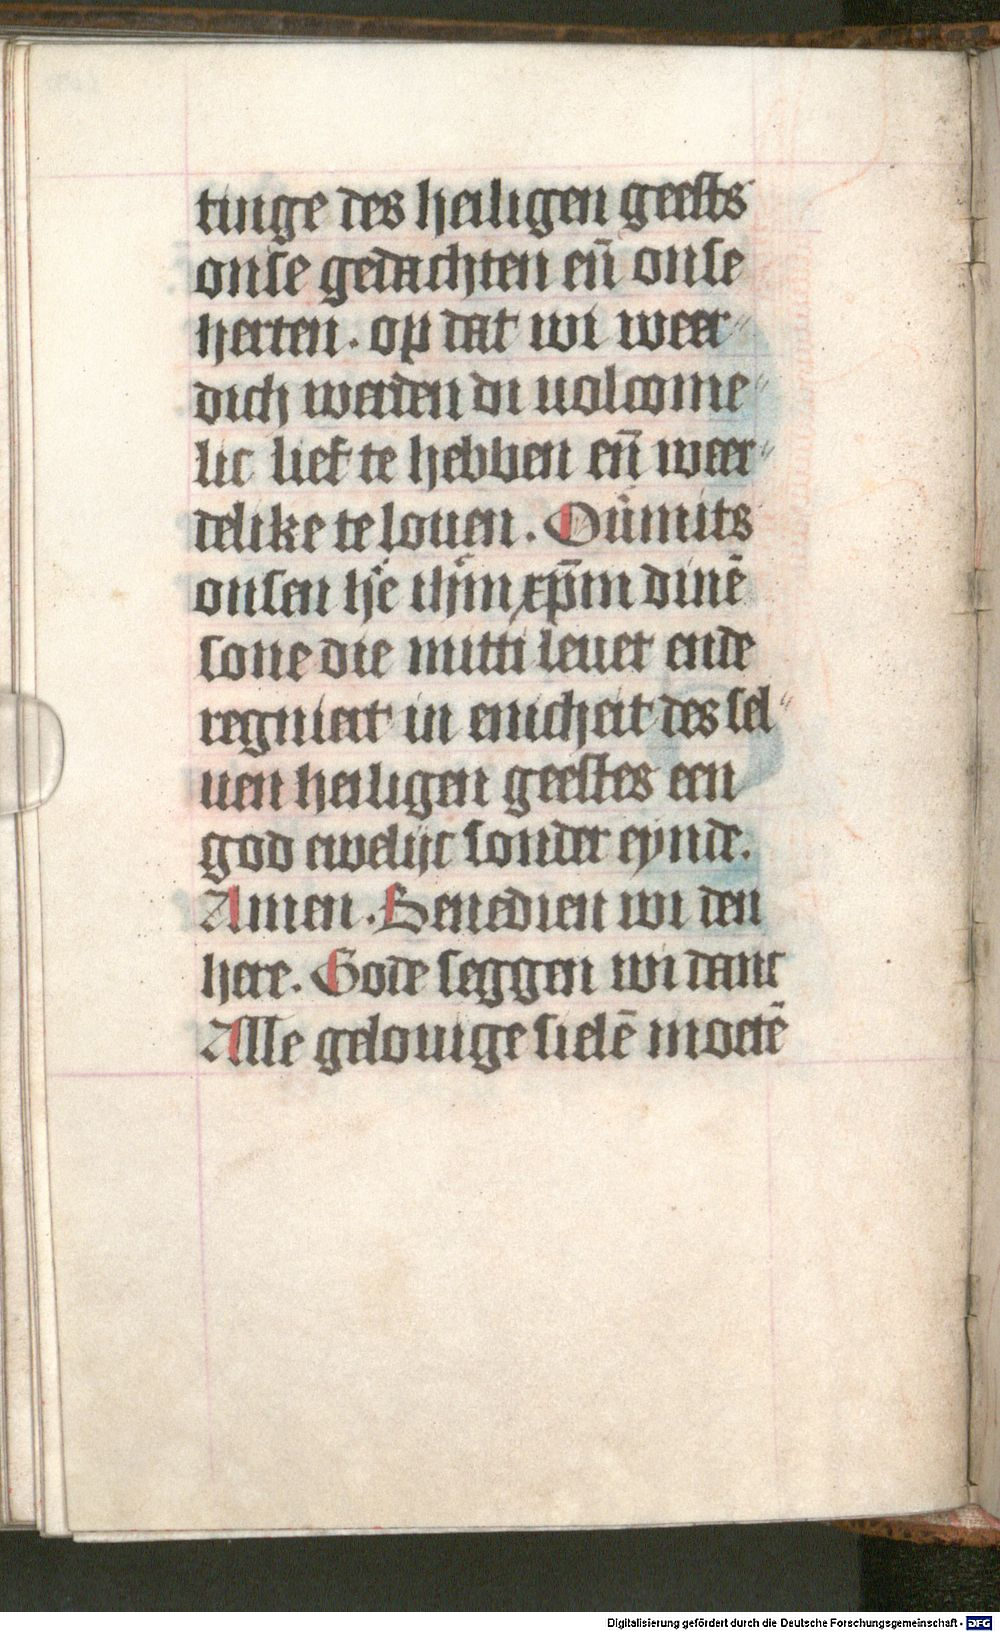 tinge des heiligen geests
onse gedachten en̄ onse
herten. op dat wi weer״
dich werden di uolcome״
lic lief te hebben en̄ weer״
delike te louen. Ou̅mits
onsen hē ihm̄ xp̄m dinē
sone die mitti leuet ende
regniert in enicheit des sel״
uen heiligen geestes een
god ewelijc sonder eynde.
Amen. Benedien wi den
here. Gode seggen wi danc
Alle gelouige sielē moetē
Digitalisierung gefördert durch die Deutsche Forschungsgemeinschaft - DFG